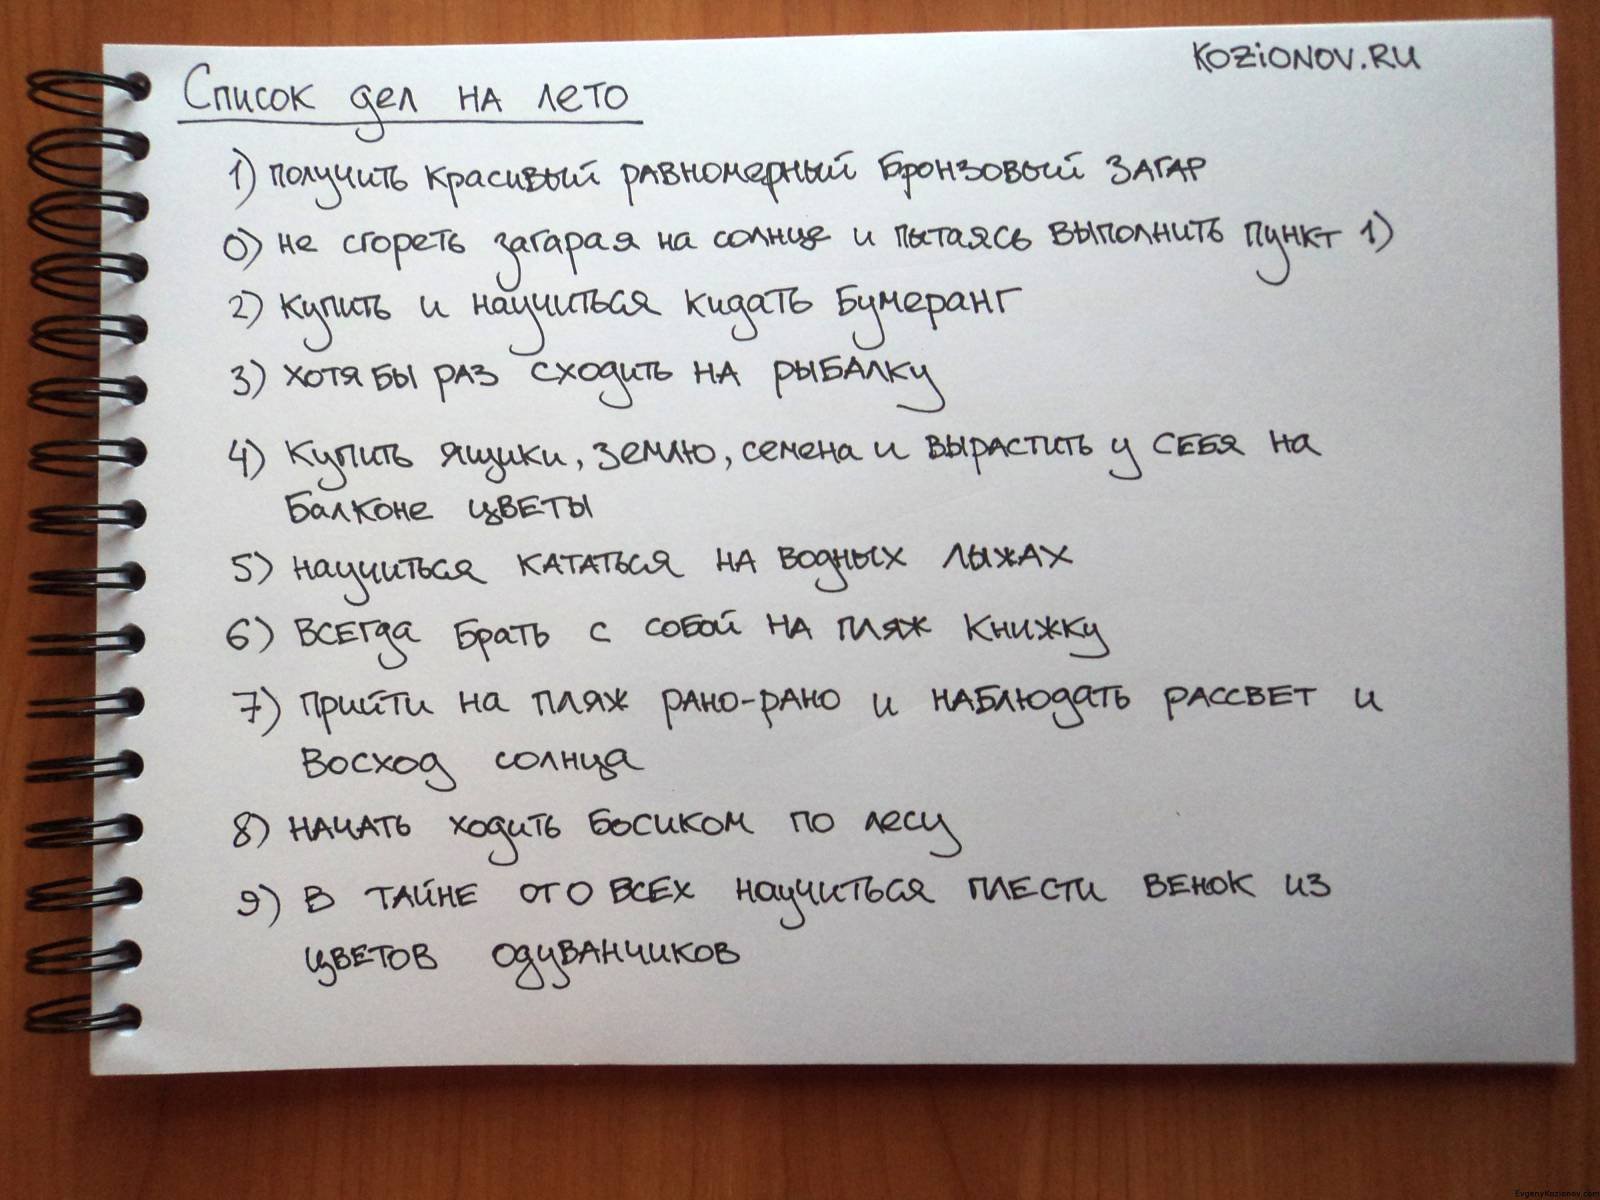 KOZIONOV.RU
Список дел на лето
1) получить красивый равномерный бронзовый загар
0) не сгореть загарая на солнце и пытаясь выполнить пункт 1)
2) купить и научиться кидать бумеранг
3) хотя бы раз сходить на рыбалку
4) купить ящики, землю, семена и вырастить у себя на
балконе цветы
5) научиться кататься на водных лыжах
6) всегда брать с собой на пляж книжку
7) прийти на пляж рано-рано и наблюдать рассвет и
восход солнца
8) начать ходить босиком по лесу
9) в тайне ото всех научиться плести венок из
цветов одуванчиков
EvgenyKozionov.com